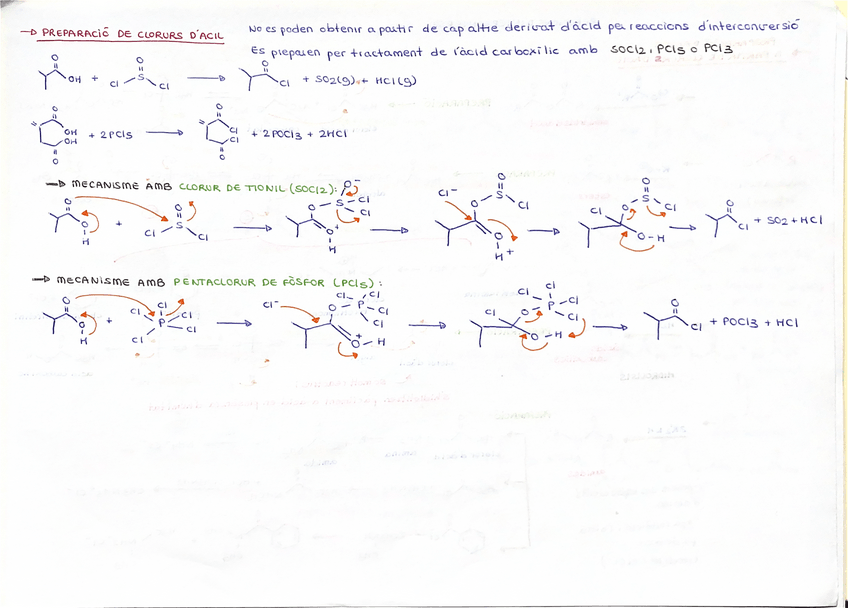 → PREPARACIÓ DE CLORURS D'ÀCIL
No es poden obtenir a partir de cap altre derivat d'àcid per reaccions d'interconversió
Es preparen per tractament de l'àcid carboxílic amb SOCl2, PCl5 o PCl3
O OH + O Cl S Cl → O Cl + SO2(g) + HCl(g)
O OH OH O + 2PCl5 → O Cl Cl O + 2POCl3 + 2HCl
→ MECANISME AMB CLORUR DE TIONIL (SOCl2):
O O H + O Cl S Cl → O- O S Cl Cl O+ H → Cl- O O S Cl O H + → Cl O O S Cl O-H → O Cl + SO2 + HCl
→ MECANISME AMB PENTACLORUR DE FÒSFOR (PCl5):
O O H + Cl Cl Cl P Cl Cl → Cl- Cl Cl O P Cl Cl O + H → Cl Cl Cl O P Cl Cl O H → O Cl + POCl3 + HCl